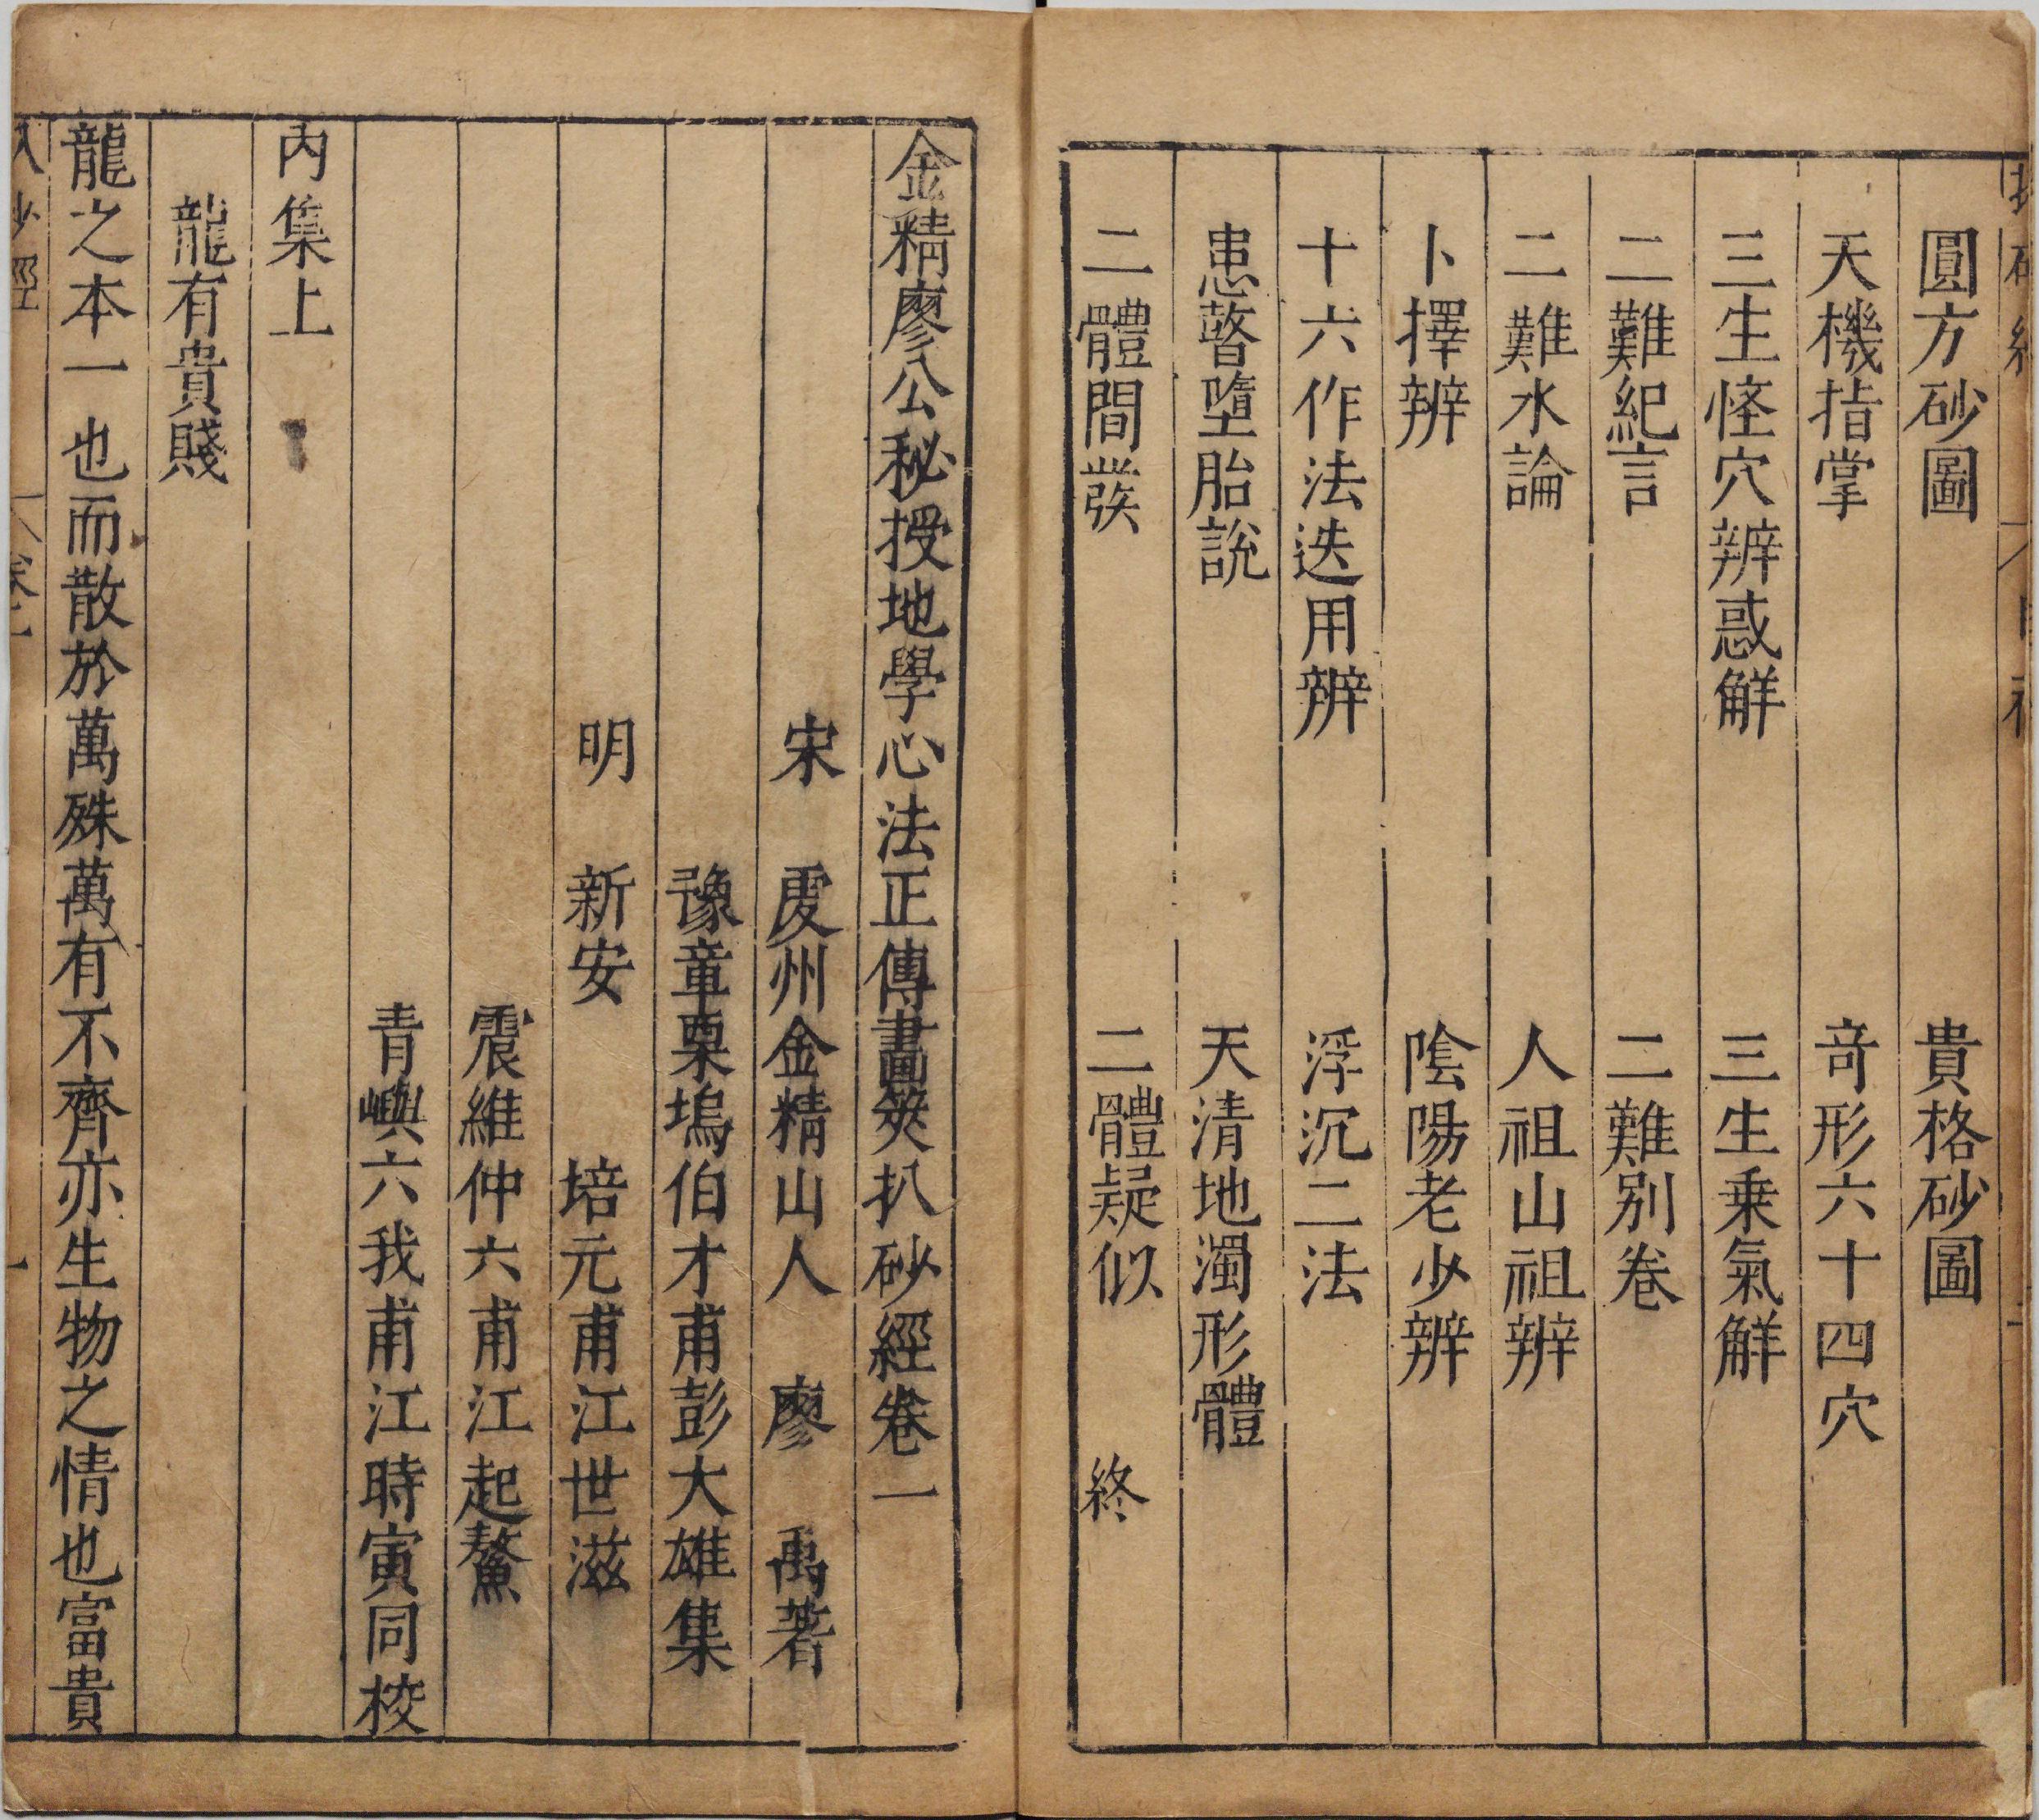 圓方砂圖　貴格砂圖
天機指掌　奇形六十四穴
三生怪穴辨惑觧　三生乗氣觧
二難紀言　二難别卷
二難水論　人祖山祖辨
卜擇辨　陰陽老少辨
十六作法迭用辨　浮沉二法
患瞽墮胎説　天清地濁形體
二體間發　二體疑似　終
金精廖公秘授地學心法正傳畫筴扒砂經卷一
宋　虔州金精山人　廖　禹著
豫章栗塢伯才甫彭大雄集
明　新安　培元甫江世滋
震維仲六甫江起鰲
青嶼六我甫江時寅同校
内集上
龍有貴賤
龍之本一也而散於萬殊萬有不齊亦生物之情也富貴